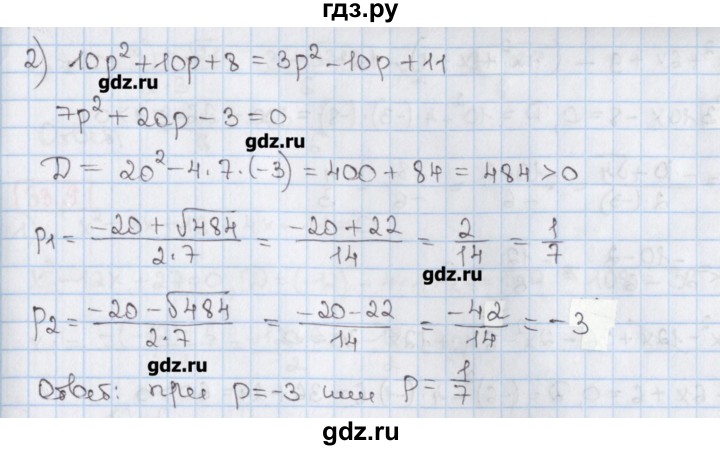 гдз.ру
2) 10p² + 10p + 8 = 3p² - 10p + 11
gdz.ru
7p² + 20p - 3 = 0
gdz.ru
D = 20² - 4·7·(-3) = 400 + 84 = 484 > 0
p₁ = (-20 + √484)/(2·7) = (-20 + 22)/14 = 2/14 = 1/7
gdz.ru
p₂ = (-20 - √484)/(2·7) = (-20 - 22)/14 = -42/14 = -3
gdz.ru
Ответ: при p = -3 или p = 1/7
gdz.ru